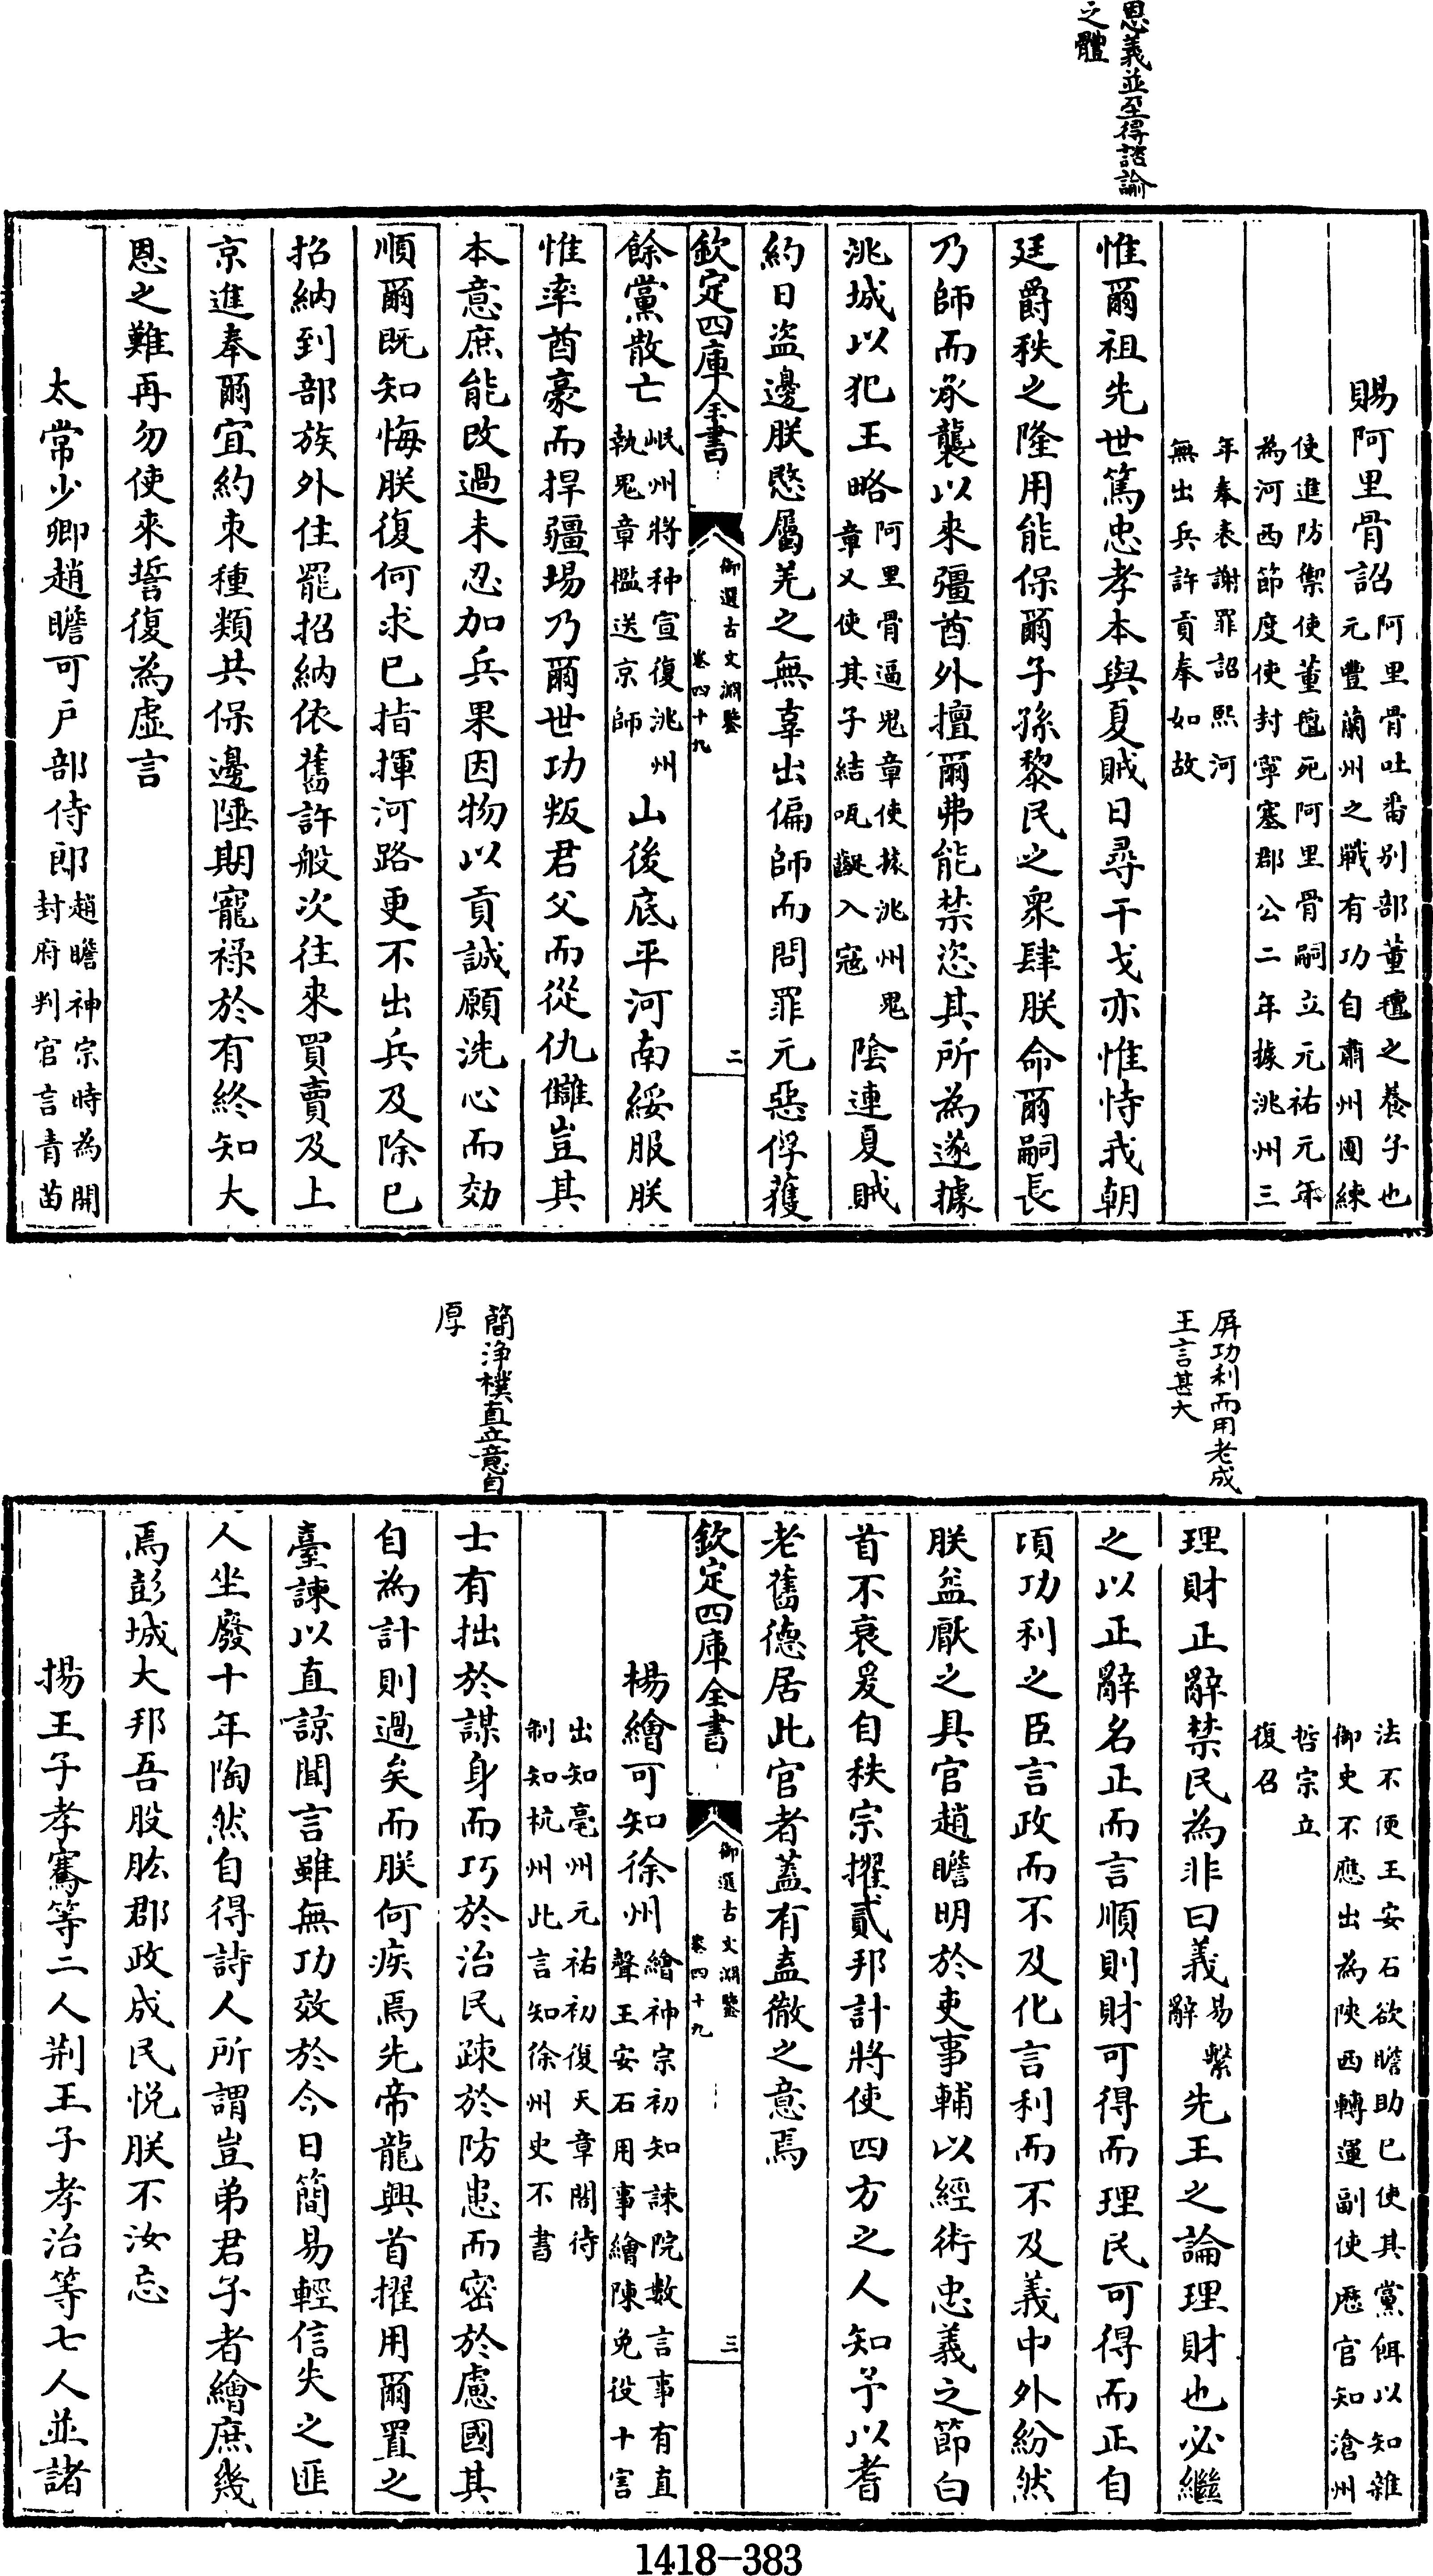 恩義並至得諮諭
之體
賜阿里骨詔阿里骨吐番别部董氊之養子也
元豐蘭州之戰有功自肅州團練
使進防禦使董氊死阿里骨嗣立元祐元年
為河西節度使封寧塞郡公二年據洮州三
年奉表謝罪詔熙河
無出兵許貢奉如故
惟爾祖先世篤忠孝本與夏賊日尋干戈亦惟恃我朝
廷爵秩之隆用能保爾子孫黎民之衆肆朕命爾嗣長
乃師而承襲以來彊酋外擅爾弗能禁恣其所為遂據
洮城以犯王略阿里骨逼鬼章使據洮州鬼
章又使其子結呱齪入寇陰連夏賊
約日盜邊朕愍屬羌之無辜出偏師而問罪元惡俘獲
欽定四庫全書
御選古文淵鑒
卷四十九
二
餘黨散亡岷州將种宣復洮州
執鬼章檻送京師山後底平河南綏服朕
惟率酋豪而捍疆場乃爾世功叛君父而從仇讎豈其
本意庶能改過未忍加兵果因物以貢誠願洗心而効
順爾既知悔朕復何求已指揮河路更不出兵及除已
招納到部族外住罷招納依舊許般次往來買賣及上
京進奉爾宜約束種類共保邊陲期寵祿於有終知大
恩之難再勿使來誓復為虛言
太常少卿趙瞻可戶部侍郎趙瞻神宗時為開
封府判官言青苗
屏功利而用老成
王言甚大
簡浄樸直立意自
厚
法不便王安石欲瞻助已使其黨餌以知雜
御史不應出為陝西轉運副使歷官知滄州
哲宗立
復召
理財正辭禁民為非曰義易繫
辭先王之論理財也必繼
之以正辭名正而言順則財可得而理民可得而正自
頃功利之臣言政而不及化言利而不及義中外紛然
朕益厭之具官趙瞻明於吏事輔以經術忠義之節白
首不衰爰自秩宗擢貳邦計將使四方之人知予以耆
老舊德居此官者蓋有盍徹之意焉
欽定四庫全書
御選古文淵鑒
卷四十九
三
楊繪可知徐州繪神宗初知諫院數言事有直
聲王安石用事繪陳免役十害
出知亳州元祐初復天章閣待
制知杭州此言知徐州史不書
士有拙於謀身而巧於治民疎於防患而密於慮國其
自為計則過矣而朕何疾焉先帝龍興首擢用爾置之
臺諫以直諒聞言雖無功效於今日簡易輕信失之匪
人坐廢十年陶然自得詩人所謂豈弟君子者繪庶幾
焉彭城大邦吾股肱郡政成民悅朕不汝忘
揚王子孝騫等二人荆王子孝治等七人並諸
1418-383